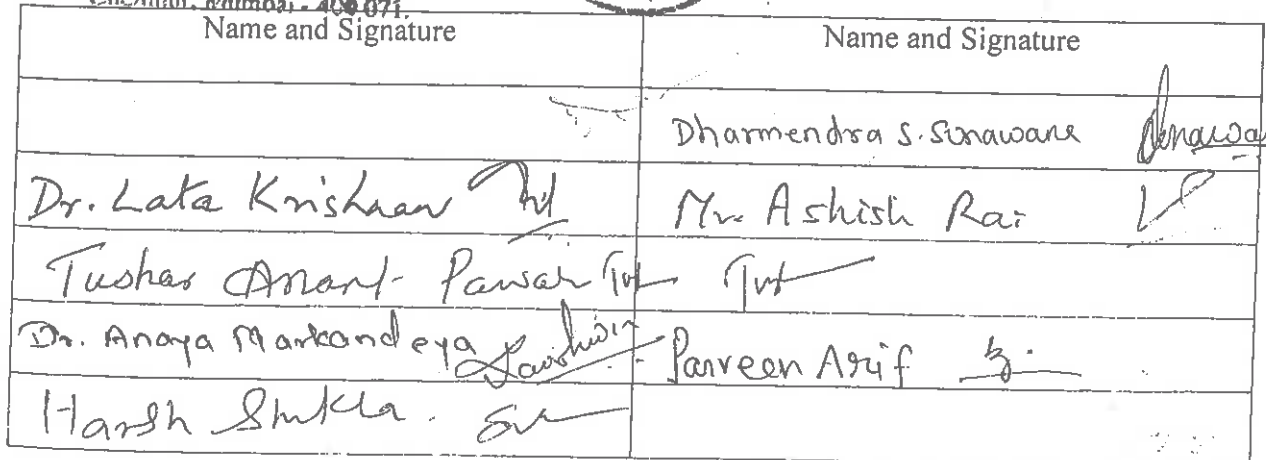 Chembur, Mumbai - 400 071.
Name and Signature Name and Signature
Dharmendra S. Sonawane
Dr. Lata Krishnan Mr. Ashish Rai
Tushar Anant Pawar
Dr. Anaya Markandeya Parveen Arif
Harsh Shukla.